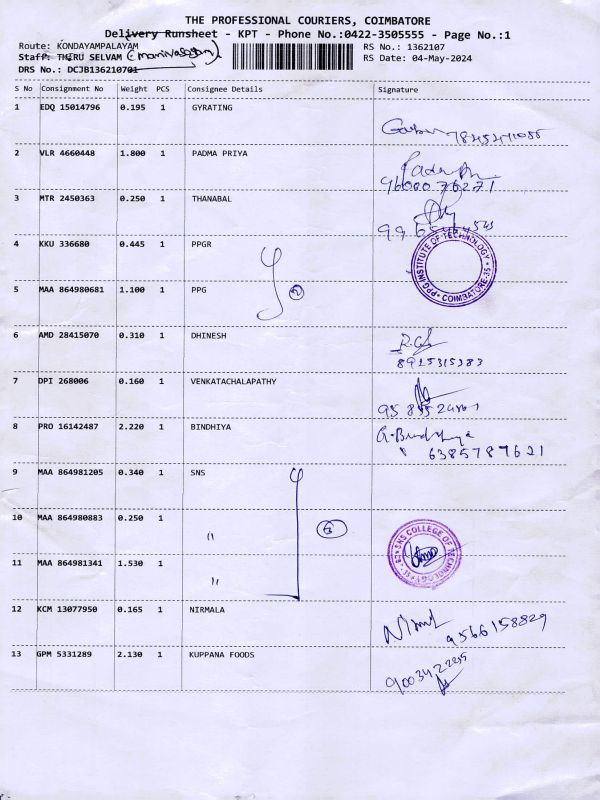 THE PROFESSIONAL COURIERS, COIMBATORE
Delivery Runsheet - KPT - Phone No.:0422-3505555 - Page No.:1
Route: KONDAYAMPALAYAM
RS No.: 1362107
Staff: THIRU SELVAM (manivasagam)
RS Date: 04-May-2024
DRS No.: DCJB136210701
S No Consignment No Weight PCS Consignee Details Signature
1 EDQ 15014796 0.195 1 GYRATING
2 VLR 4660448 1.800 1 PADMA PRIYA
9600076271
3 MTR 2450363 0.250 1 THANABAL
4 KKU 336680 0.445 1 PPGR
PPG INSTITUTE OF TECHNOLOGY COIMBATORE-35
5 MAA 864980681 1.100 1 PPG 2
6 AMD 28415070 0.310 1 DHINESH
8925315383
7 DPI 268006 0.160 1 VENKATACHALAPATHY
8 PRO 16142487 2.220 1 BINDHIYA G. Bindhiya
6385789621
9 MAA 864981205 0.340 1 SNS
10 MAA 864980883 0.250 1 "
SNS COLLEGE OF TECHNOLOGY
11 MAA 864981341 1.530 1 "
12 KCM 13077950 0.165 1 NIRMALA Nirmal
9566158829
13 GPM 5331289 2.130 1 KUPPANA FOODS